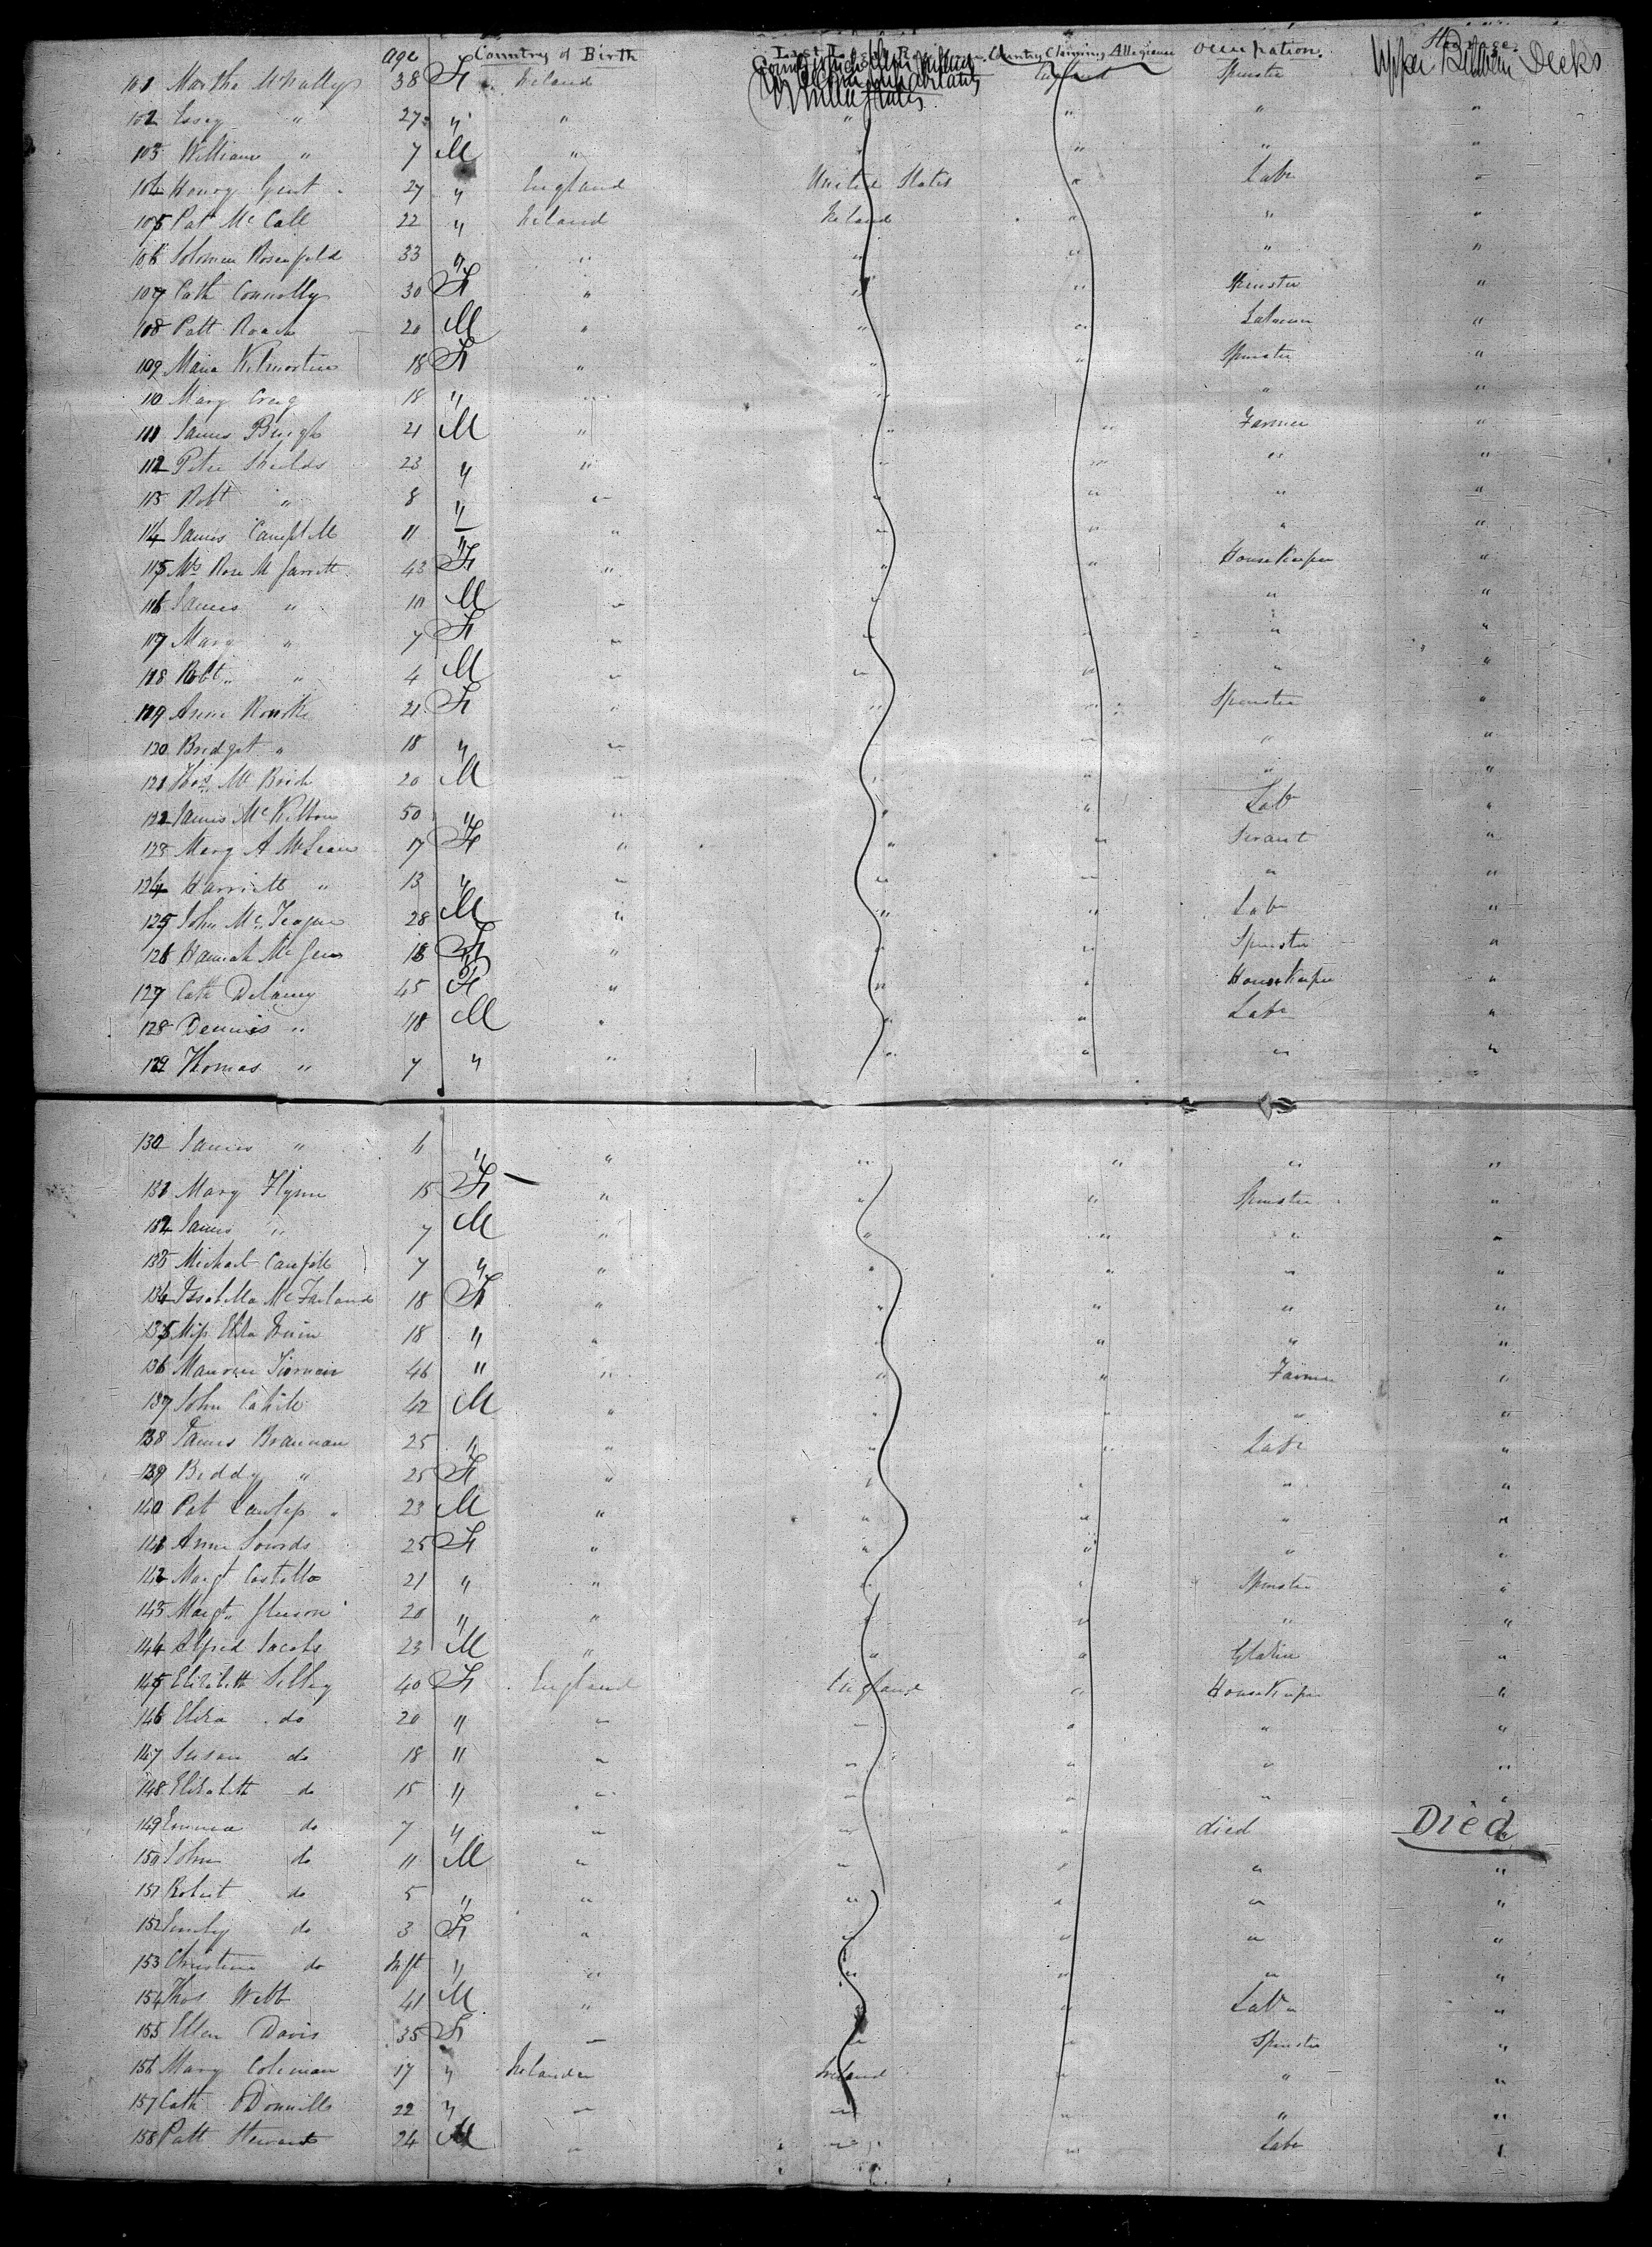 age Country of Birth Country Claiming Allegiance Occupation
101 Martha McNally 38 F Ireland England Spinster Upper Between Decks
102 Essey " 27 " " " " " "
103 William " 7 M " " " "
104 Henry Gent 27 " England United States " Labr "
105 Pat McCall 22 " Ireland Ireland " " "
106 Solomon Rosenfeld 33 " " " " " "
107 Cath Connolly 30 F " " " Spinster "
108 Patt Roach 20 M " " " Labourer "
109 Maria Kilmartin 18 F " " " Spinster "
110 Mary Creig 18 " " " " "
111 James Burgh 21 M " " " Farmer "
112 Peter Shields 23 " " " " " "
113 Robt " 8 " " " " " "
114 James Campbell 11 " " " " " "
115 Mrs Rose McGarrett 43 F " " " House Keeper "
116 James " 10 M " " " "
117 Mary " 7 F " " " " "
118 Robt " 4 M " " " " "
119 Anne Rourke 21 F " " " Spinster "
120 Bridget " 18 " " " " "
121 Thos McBride 20 M " " " " "
122 James McKibbon 50 " " " " Lab "
123 Mary A McLean 17 F " " " Servant "
124 Harriett " 13 " " " " " "
125 John McTeague 28 M " " " Lab "
126 Hannah 18 F " " " Spinster "
127 Cath Delaney 45 F " " " House Keeper "
128 Dennis " M " " " Labr "
129 Thomas " 7 " " " " " "
130 James " 6 " " " " " "
131 Mary Flynn 15 F " " " Spinster "
132 James " 7 M " " " " "
133 Michael Campbell 7 " " " " " "
134 Issabella McFarland 18 F " " " " "
135 Miss Ella 18 " " " " " "
136 46 " " " " Farmer "
137 John Cahill 42 M " " " " "
138 James Brannan 25 " " " " Labr "
139 Biddy " 25 F " " " " "
140 Pat 23 M " " " " "
141 Anne 25 F " " " " "
142 Margt Costello 21 " " " " Spinster "
143 Margt Gleeson 20 " " " " " "
144 Alfred Jacobs 23 M " " " "
145 Elizabeth Selley 40 F England England " House Keeper "
146 Eliza do 20 " " " " " "
147 Susan do 18 " " " " " "
148 Elizabeth do 15 " " " " " "
149 Emma do 7 " " " " died Died
150 John do 11 M " " " " "
151 Robert do 5 " " " " " "
152 Emily do 3 F " " " " "
153 Christina do Inft " " " " " "
154 Thos Webb 41 M " " " Labr "
155 Ellen Davis 35 F " " " Spinster "
156 Mary Coleman 17 " Ireland Ireland " " "
157 Cath O'Donnells 22 " " " " " "
158 Patt Steward 24 M " " " Labr "